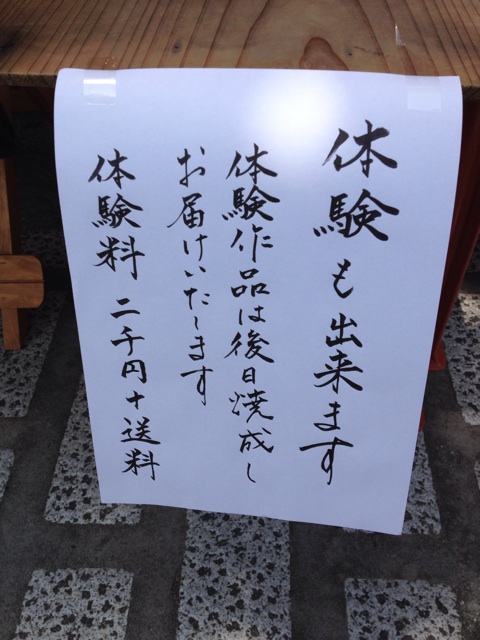 体験も出来ます
体験作品は後日焼成し
お届けいたします
体験料 二千円+送料